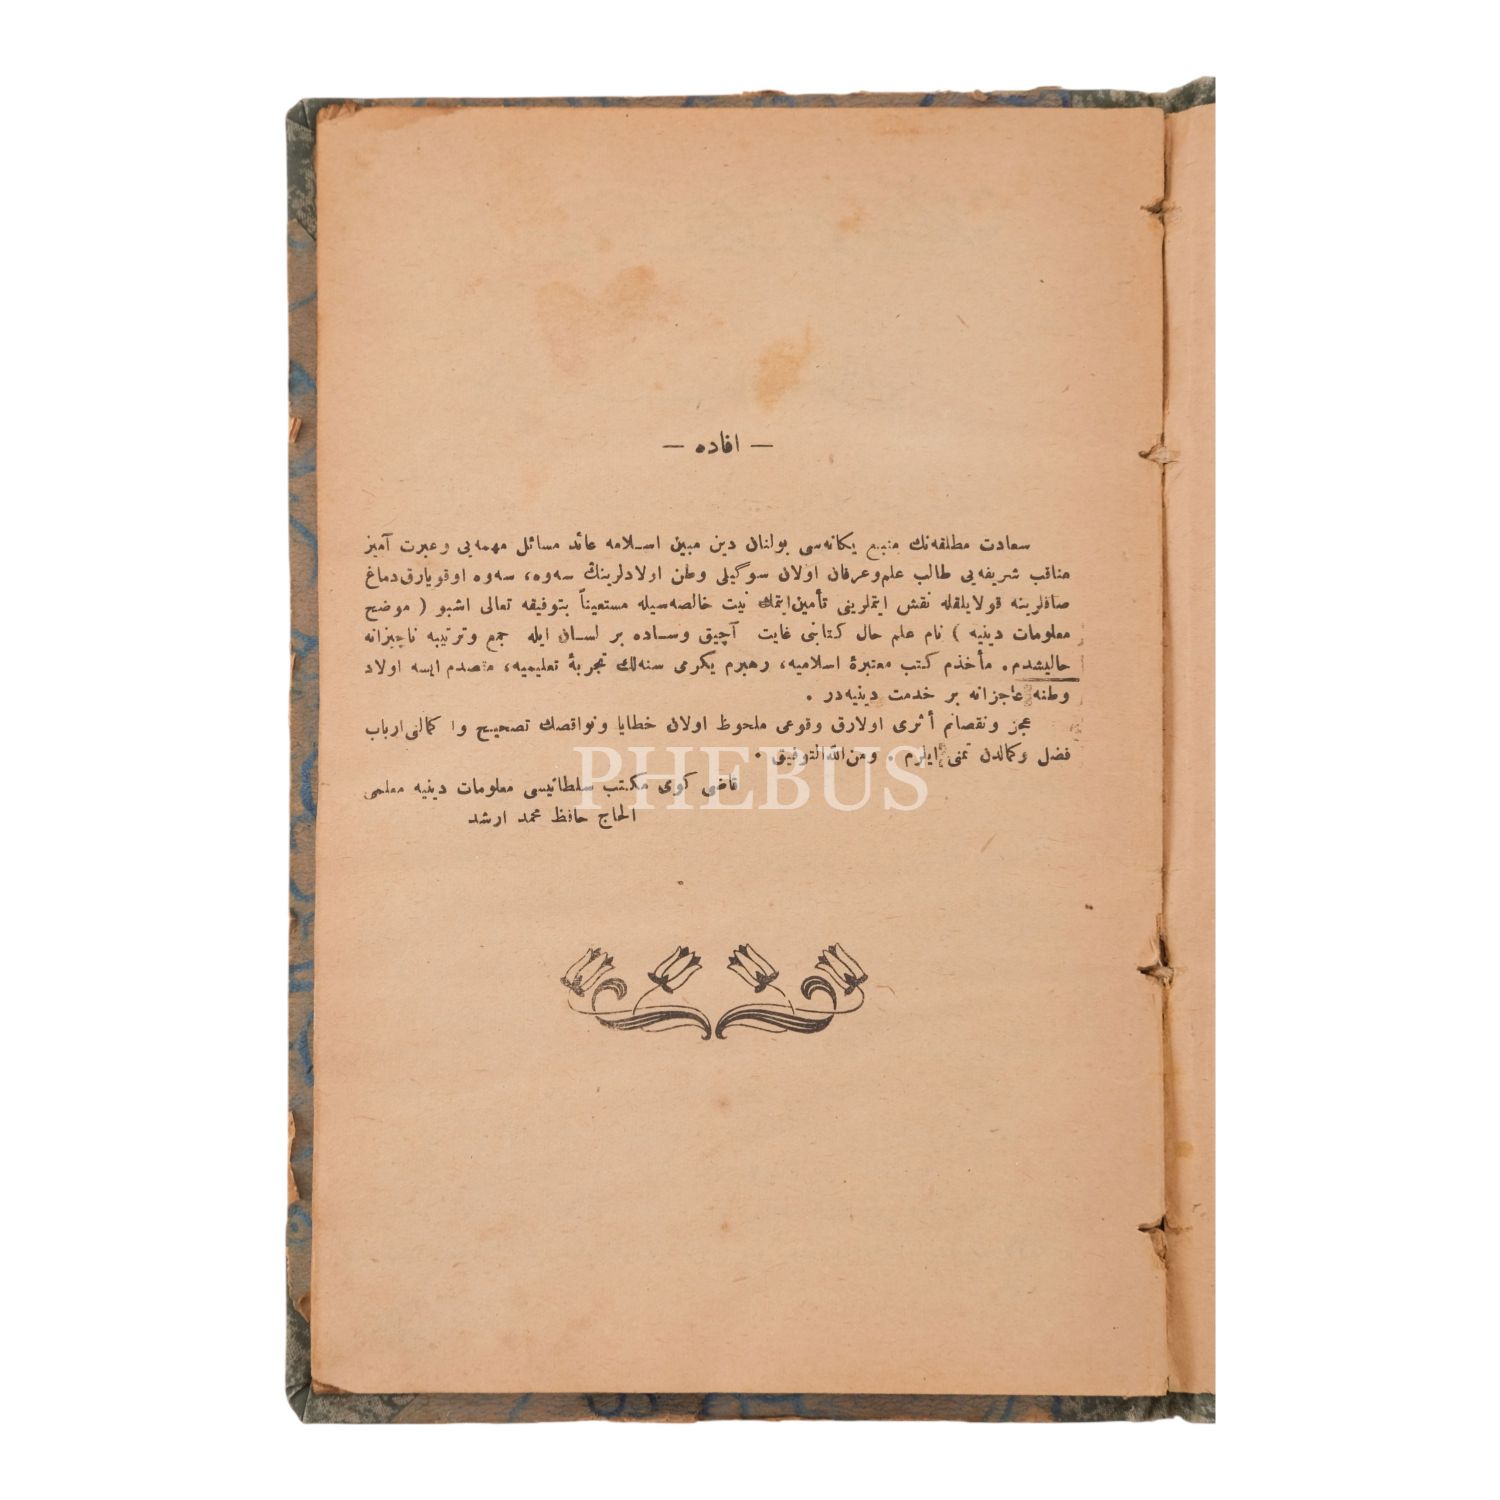 — افاده —
سعادت مطلقه‌نك منبع یكانه‌سی بولنان دین مبین اسلامه عائد مسائل مهمه‌یی وعبرت آمیز
مناقب شریفه‌یی طالب علم‌وعرفان اولان سوگیلی وطن اولادلرینك سه‌وه، سه‌وه اوقویارق‌دماغ
صافلرینه قولایلقله نقش ایتملرینی تأمین‌ایتمك نیت خالصه‌سیله مستعیناً بتوفیقه تعالی اشبو ( موضح
معلومات دینیه ) نام علم حال كتابنی غایت آچیق وساده بر لسان ایله جمع وترتیبه ناچیزانه
چالیشدم. مأخذم كتب معتبرهٔ اسلامیه، رهبرم یكرمی سنه‌لك تجربهٔ تعلیمیه، مقصدم ایسه اولاد
وطنه عاجزانه بر خدمت دینیه‌در .
عجز ونقصانم أثری اولارق وقوعی ملحوظ اولان خطایا ونواقصك تصحیح وا كمالنی‌ارباب
فضل وكمالدن تمنی ایلرم . ومن‌الله‌التوفیق .
PHEBUS
قاضی كوی مكتب سلطانیسی معلومات دینیه معلمی
الحاج حافظ محمد ارشد